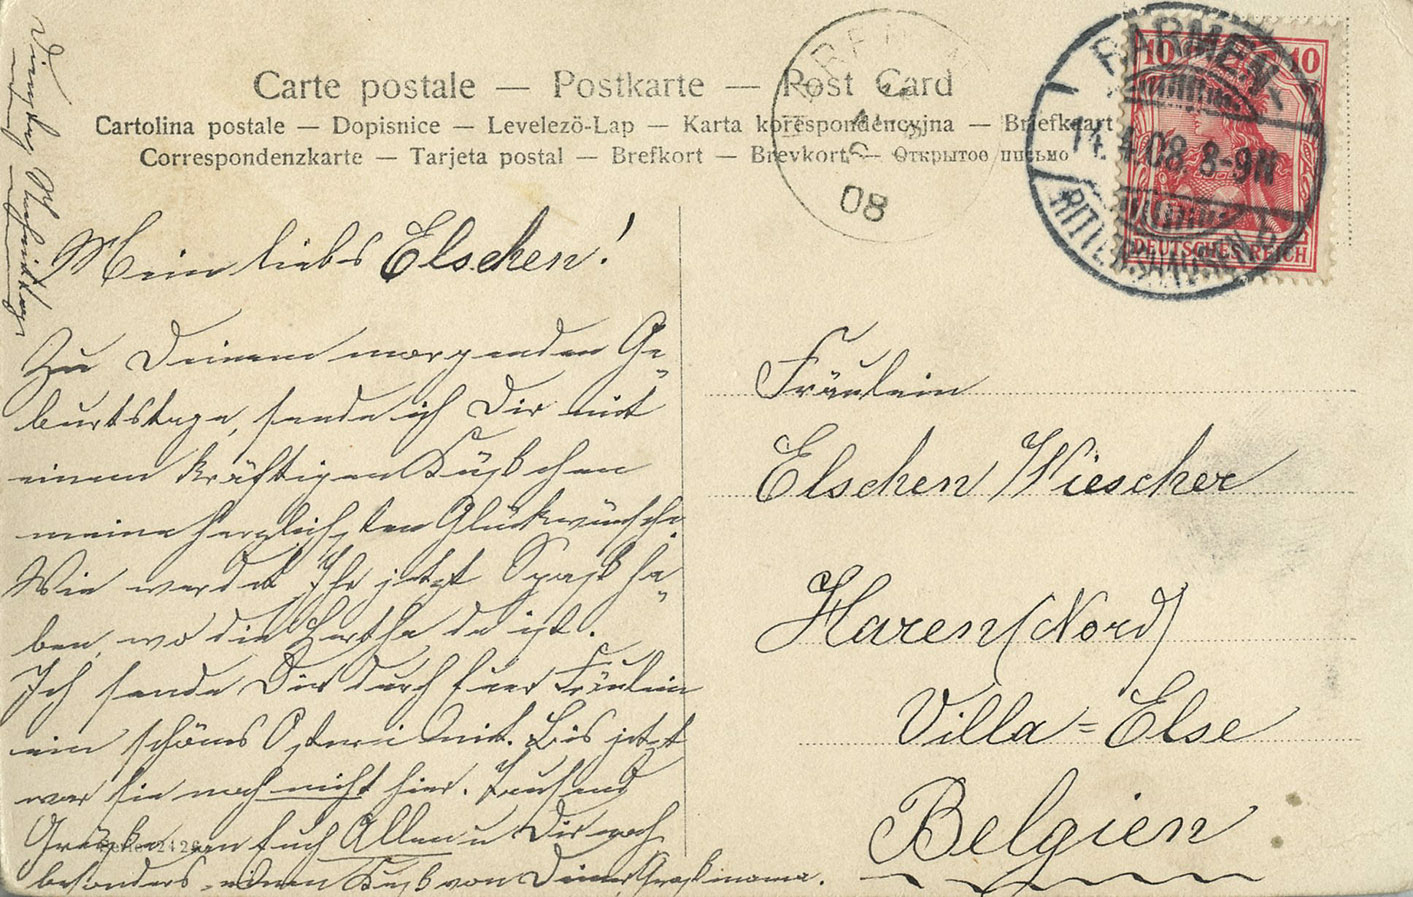 Carte postale — Postkarte — Post Card
Cartolina postale — Dopisnice — Levelezö-Lap — Karta korespondencyjna — Briefkaart
Correspondenzkarte — Tarjeta postal — Brefkort — Brevkort — Открытое письмо
08
BARMEN
14.4.08. 8-9N
RITTERSHAUSEN
10 10
DEUTSCHES REICH
Mein liebs Elschen!
Zu Deinem morgenden Ge-
burtstage, sende ich Dir mit
einem kräftigen Küßchen
meine herzlichsten Glückwünsche.
Wie werdet Ihr jetzt Spaß ha-
ben, wo die Hertha da ist.
Ich sende Dir durch Fräulein
ein schönes Osterei mit. Bis jetzt
war sie noch nicht hier. Tausend
Grüße an Euch Allen u Dir noch
besonders einen Kuß von Deiner Großmama.
Serie 242
Fräulein
Elschen Wiescher
Haren (Nord)
Villa=Else
Belgien